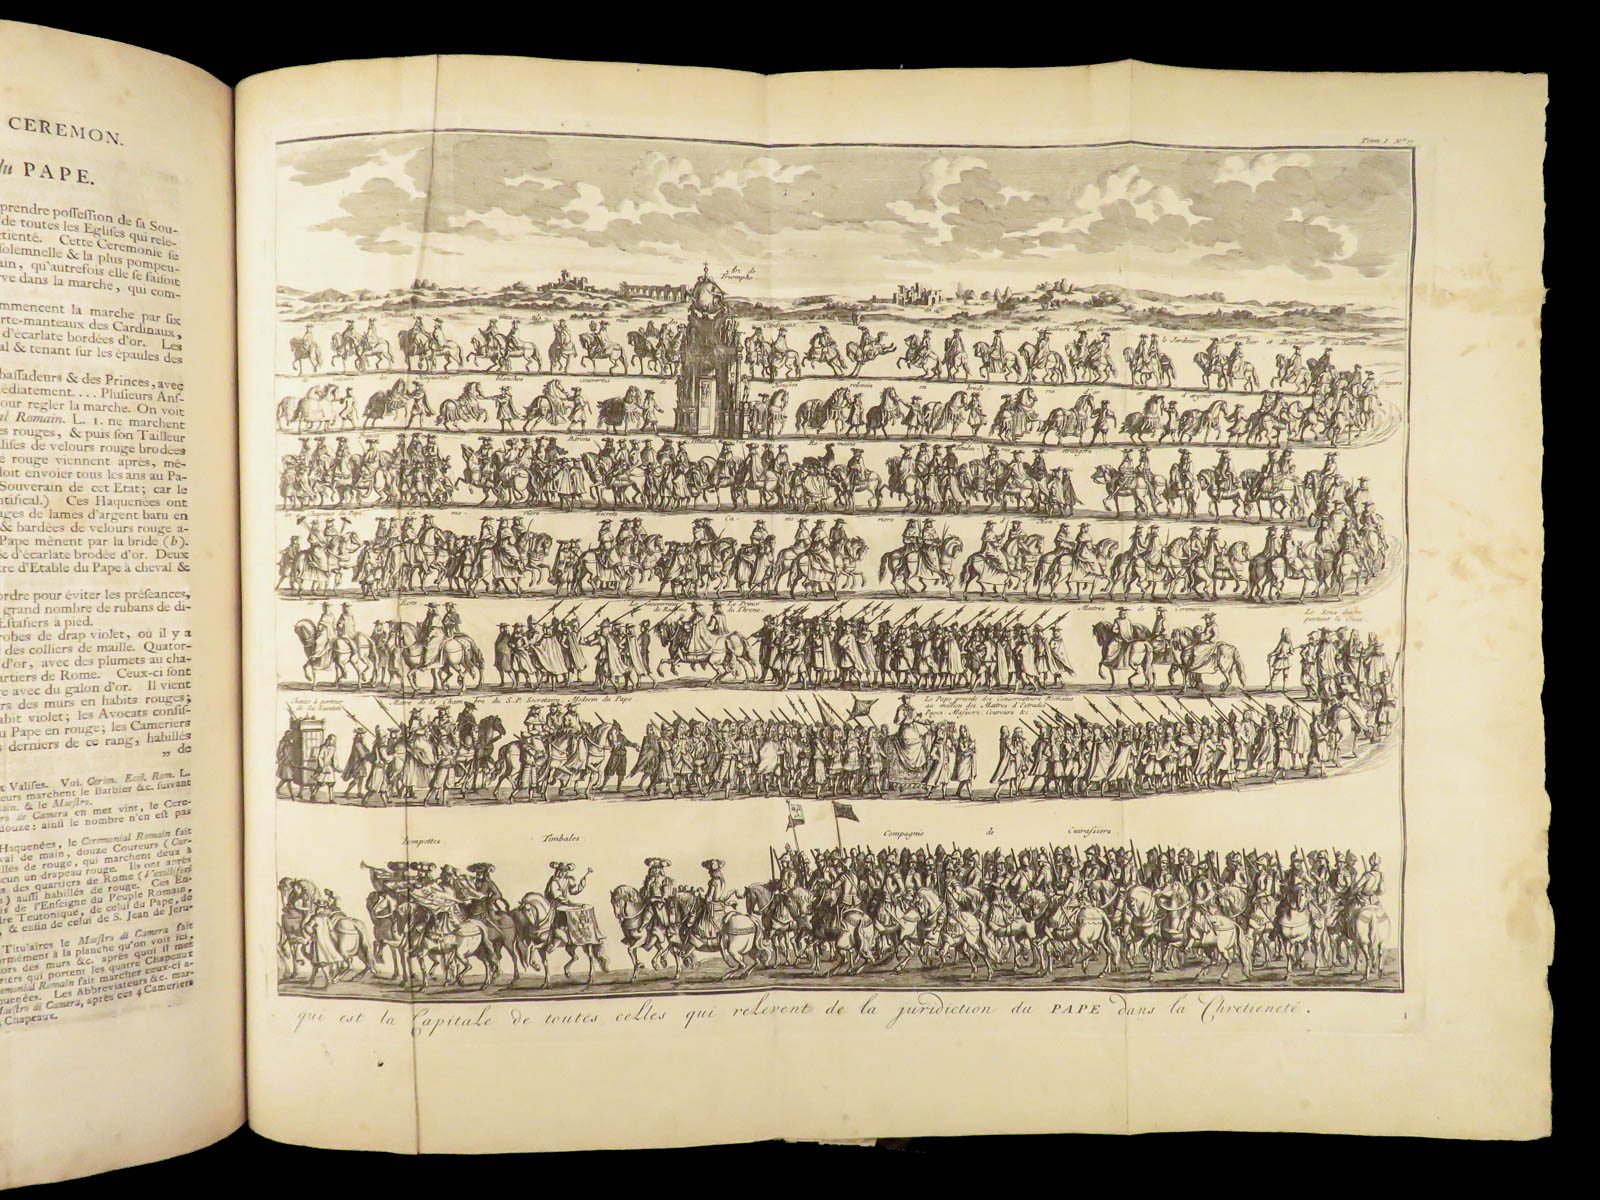 CEREMON.
du PAPE.
prendre possession de sa Sou-
de toutes les Eglises qui rele-
tienté. Cette Ceremonie se
solemnelle & la plus pompeu-
ain, qu'autrefois elle se faisoit
rve dans la marche, qui com-
mmencent la marche par six
rte-manteaux des Cardinaux,
d'écarlate bordées d'or. Les
al & tenant sur les épaules des
bassadeurs & des Princes, avec
édiatement. . . . Plusieurs Ans-
pour regler la marche. On voit
al Romain. L. 1. ne marchent
es rouges, & puis son Tailleur
alises de velours rouge brodées
e rouge viennent après, mé-
doit envoier tous les ans au Pa-
Souverain de cet Etat; car le
ntifical.) Ces Haquenées ont
ages de lames d'argent batu en
& bardées de velours rouge a-
Pape mênent par la bride (b).
& d'écarlate brodée d'or. Deux
tre d'Etable du Pape à cheval &
ordre pour éviter les préséances,
grand nombre de rubans de di-
Estafiers à pied.
robes de drap violet, où il y a
des colliers de maille. Quator-
d'or, avec des plumets au cha-
artiers de Rome. Ceux-ci sont
re avec du galon d'or. Il vient
rs des murs en habits rouges;
abit violet; les Avocats consis-
u Pape en rouge; les Cameriers
s derniers de ce rang, habillés
„ de
x Valises. Voi. Cerim. Eccl. Rom. L.
eurs marchent le Barbier &c. suivant
main. & le Maestro.
ro di Camera en met vint, le Cere-
douze: ainsi le nombre n'en est pas
Haquenées, le Ceremonial Romain fait
val de main, douze Coureurs (Cur-
llés de rouge, qui marchent deux à
cun un drapeau rouge. Ils ont après
s des quartiers de Rome (Vexilliferi
) aussi habillés de rouge. Ces En-
is de l'Enseigne du Peuple Romain,
dre Teutonique, de celui du Pape, de
, & enfin de celui de S. Jean de Jeru-
Titulaires le Maestro di Camera fait
ormément à la planche qu'on voit ici,
ors des murs &c. après quoi il met
riers qui portent les quatre Chapeaux
remonial Romain fait marcher ceux-ci a-
quenées. Les Abbreviateurs &c. mar-
Maestro di Camera, après ces 4 Cameriers
4 Chapeaux.
Tom I. N°
Arc de
Triomphe
Cardinaux
le Jardinier
et Boulanger de sa Sainteté
Haquenées blanches couvertes de
Housses relevées en brode-
rie d'or et d'argent
Barons Romains
les Chapeaux du Pape Ca- me- riers secrets Ca- me riers d'Hon.
de Rote
Le Gouverneur
de Rome
Le Prince
du Throne.
Maitres de Ceremonies
Le Sous diacre
portant la Croix
Chaise à porteur
de Sa Sainteté
Maitre de la Cham bre du S. P. Secretaire Medecin du Pape
Le Pape precedé des Conservateurs Romains
au milieu des Maitres d'Estrade
Pages, Massiers, Coureurs &c.
Trompettes Timbales
Compagnie de Cuirassiers
qui est la Capitale de toutes celles qui relevent de la juridiction du PAPE dans la Chretieneté.